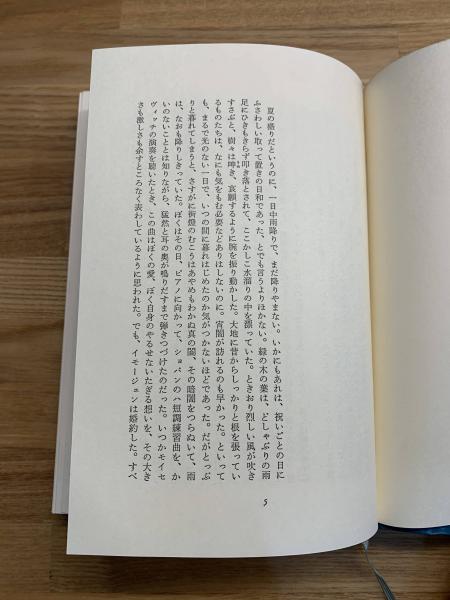 夏の盛りだというのに、一日中雨降りで、まだ降りやまない。いかにもあれは、祝いごとの日に
ふさわしい取って置きの日和であった、とでも言うよりほかない。緑の木の葉は、どしゃぶりの雨
足にひきもきらず叩き落とされて、ここかしこ水溜りの中を漂っていた。ときおり烈しい風が吹き
すさぶと、樹々は呻き、哀願するように腕を振り動かした。大地に昔からしっかりと根を張ってい
るものたちは、なにも気をもむ必要などありはしないのに。宵闇が訪れるのも早かった。といって
も、まるで光のない一日で、いつの間に暮れはじめたのか気がつかないほどであった。だがとっぷ
りと暮れてしまうと、さすがに街燈のむこうはあやめもわかぬ真の闇、その暗闇をつらぬいて、雨
は、なおも降りしきっていた。ぼくはその日、ピアノに向かって、ショパンのハ短調練習曲を、か
いのないこととは知りながら、猛然と耳の奥が鳴りだすまで弾きつづけたのだった。いつかモイセ
ヴィッチの演奏を聴いたとき、この曲はぼくの愛、ぼく自身のやるせないたぎる想いを、その大き
さも激しさも余すところなく表わしているように思われた。でも、イモージェンは婚約した。すべ
5